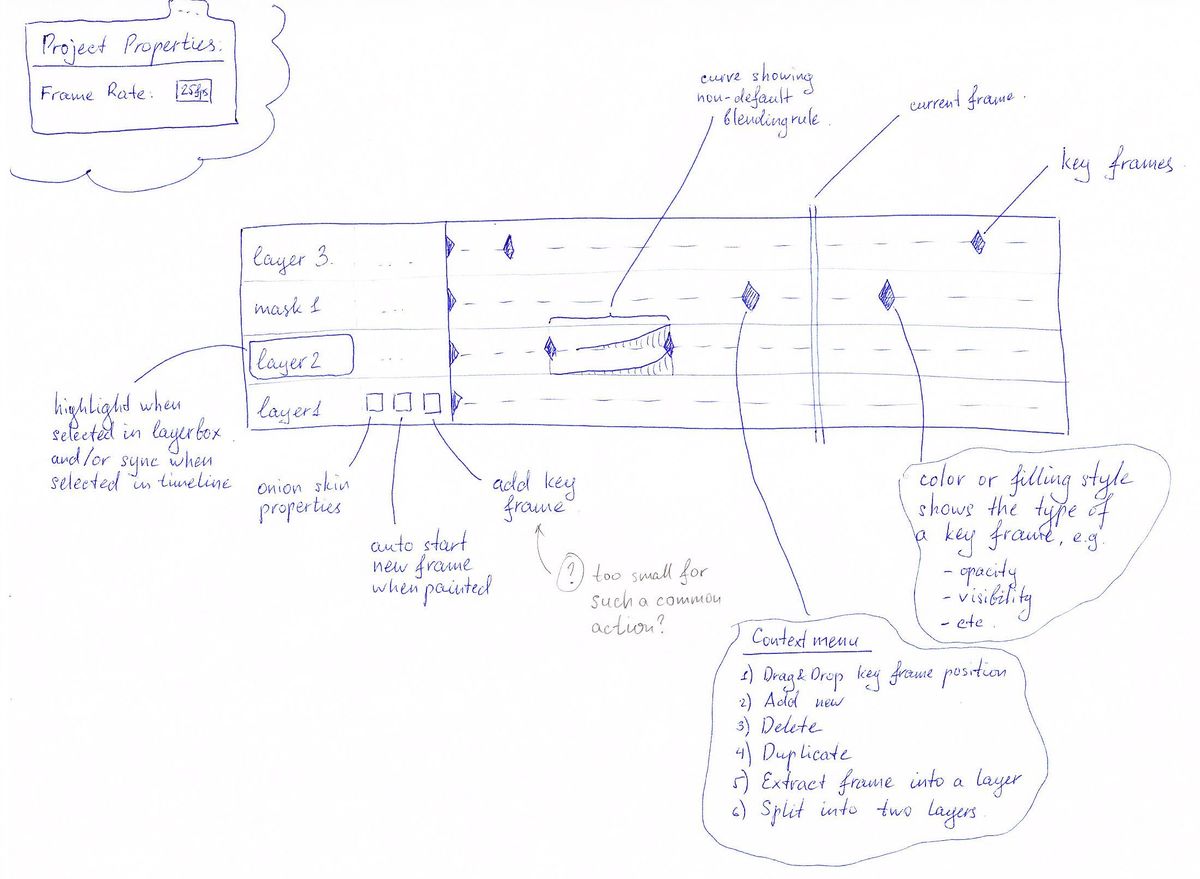 Project Properties:
Frame Rate: 25fps
curve showing
non-default
blending rule.
current frame.
key frames
layer 3. ...
mask 1 ...
layer 2 ...
layer 1
highlight when
selected in layerbox
and/or sync when
selected in timeline
onion skin
properties
auto start
new frame
when painted
add key
frame
? too small for
such a common
action?
color or filling style
shows the type of
a key frame, e.g.
- opacity
- visibility
- etc.
Context menu
1) Drag&Drop key frame position
2) Add new
3) Delete
4) Duplicate
5) Extract frame into a layer
6) Split into two layers.